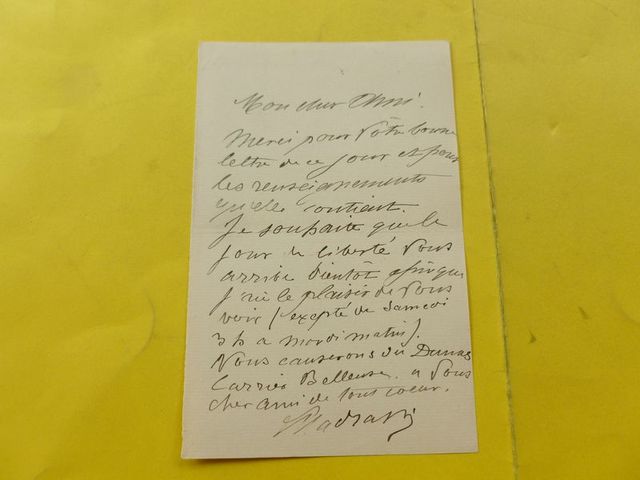 Mon cher Ami.
Merci pour Vôtre bonne
lettre de ce jour et pour
les renseignements
qu'elle contient.
Je souhaite que le
jour de liberté Vous
arrive bientôt afin que
j'aie le plaisir de Vous
voir (excepté de Samedi
3h a mardi matin).
Nous causerons du Dumas
Carrier Belleuse. a Vous
cher ami de tout coeur.